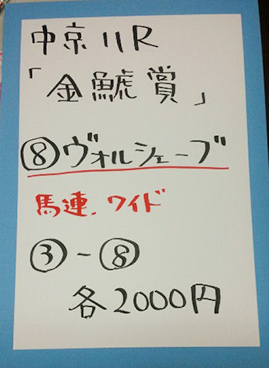 中京11R
「金鯱賞」
⑧ヴォルシェーブ
馬連.ワイド
③-⑧
各2000円